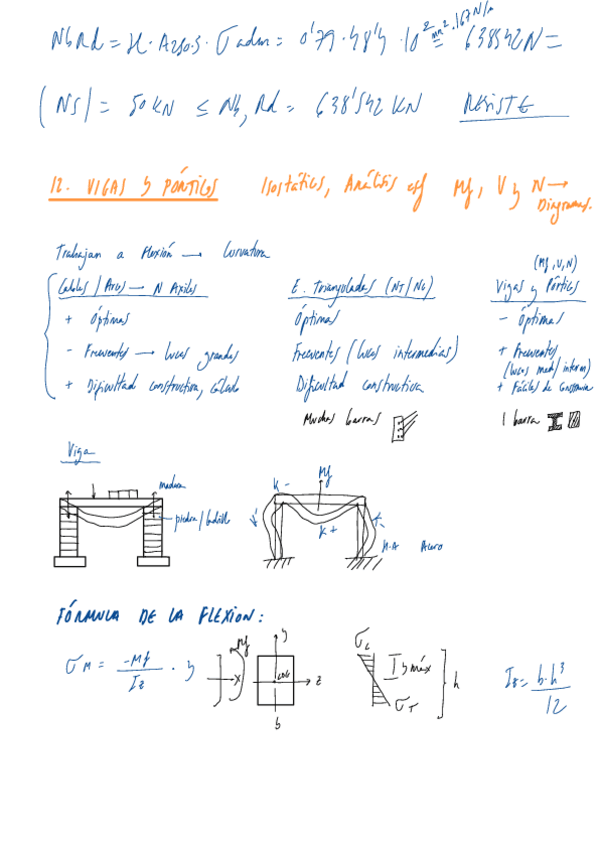 Nb,Rd = χ · A280.5 · σ adm = 0'79 · 48'4 · 10² mm² · 167 N/mm² = 638542 N =
(Ns) = 50 KN ≤ Nb,Rd = 638'542 KN RESISTE
12. VIGAS Y PÓRTICOS Isostáticos, Análisis esf Mf, V y N → Diagramas.
Trabajan a Flexión → Curvatura
(Mf, V, N)
Cables / Arcos → N Axiles E. Trianguladas (NT/NC) Vigas y Pórticos
+ Óptimas Óptimas - Óptimas
- Frecuentes → luces grandes Frecuentes (luces intermedias) + Frecuentes
(luces med/interm)
+ Dificultad constructiva, cálculo Dificultad constructiva + Fáciles de
Muchas barras 1 barra
Viga
madera
piedra/ladrillo
Mf
K -
K +
H.A Acero
FÓRMULA DE LA FLEXION:
σM = -Mf / Iz · y
Mf
x
y
z
cdg
b
σc
y máx
h
σT
Iz = b·h³ / 12